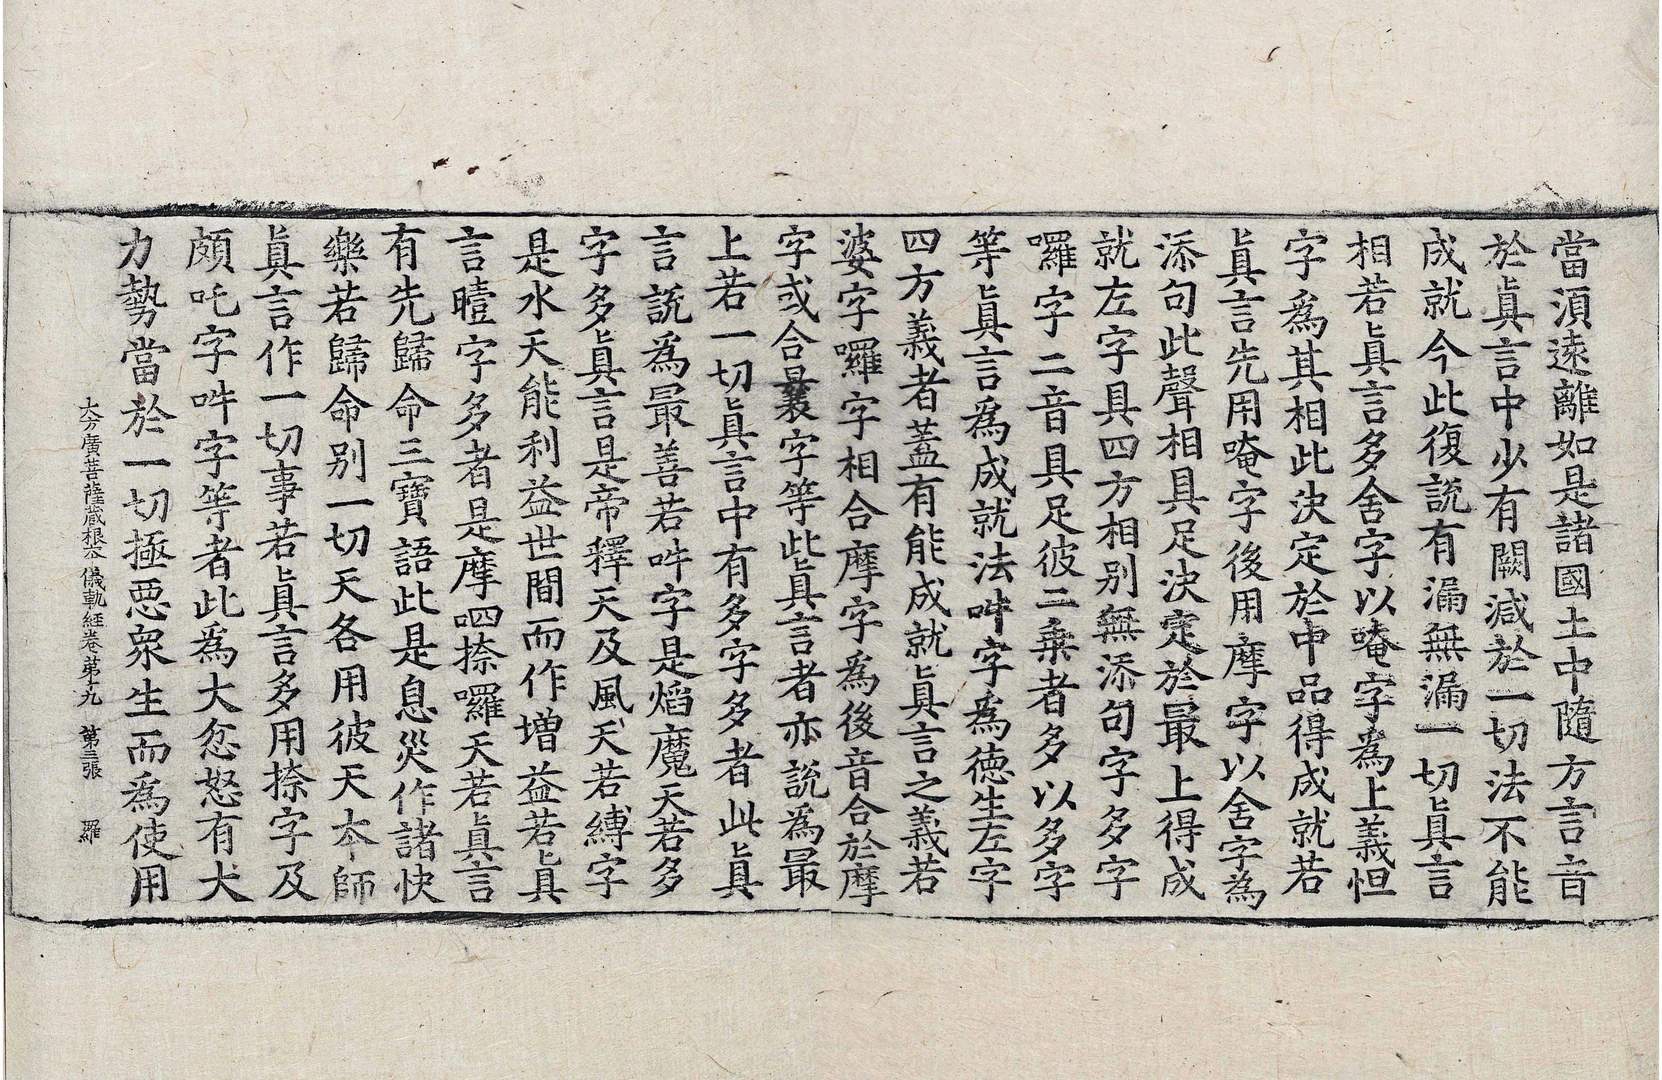 當須遠離如是諸國土中隨方言音
於眞言中少有闕減於一切法不能
成就今此復說有漏無漏一切眞言
相若眞言多舍字以唵字爲上義怛
字爲其相此決定於中品得成就若
眞言先用唵字後用摩字以舍字爲
添句此聲相具足決定於最上得成
就左字具四方相別無添句字多字
囉字二音具足彼二乗者多以多字
等眞言爲成就法吽字爲德生左字
四方義者蓋有能成就眞言之義若
婆字囉字相合摩字爲後音合於摩
字或合曩字等此眞言者亦說爲最
上若一切眞言中有多字多者此眞
言說爲最善若吽字是焰魔天若多
字多眞言是帝釋天及風天若縛字
是水天能利益世間而作增益若眞
言曀字多者是摩呬捺囉天若眞言
有先歸命三寶語此是息災作諸快
樂若歸命別一切天各用彼天本師
眞言作一切事若眞言多用捺字及
頗吒字吽字等者此爲大忿怒有大
力勢當於一切極惡衆生而爲使用
大方廣菩薩藏根本儀軌經卷第十九 第三張 羅